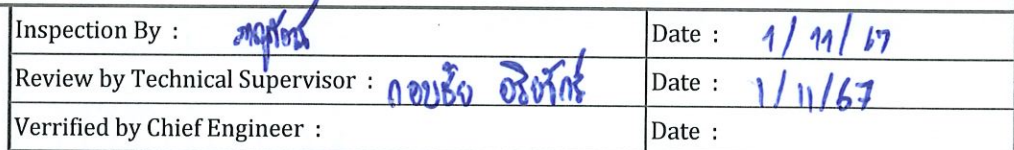 Inspection By : Date : 1/11/67
Review by Technical Supervisor : กอบชัย Date : 1/11/67
Verrified by Chief Engineer : Date :